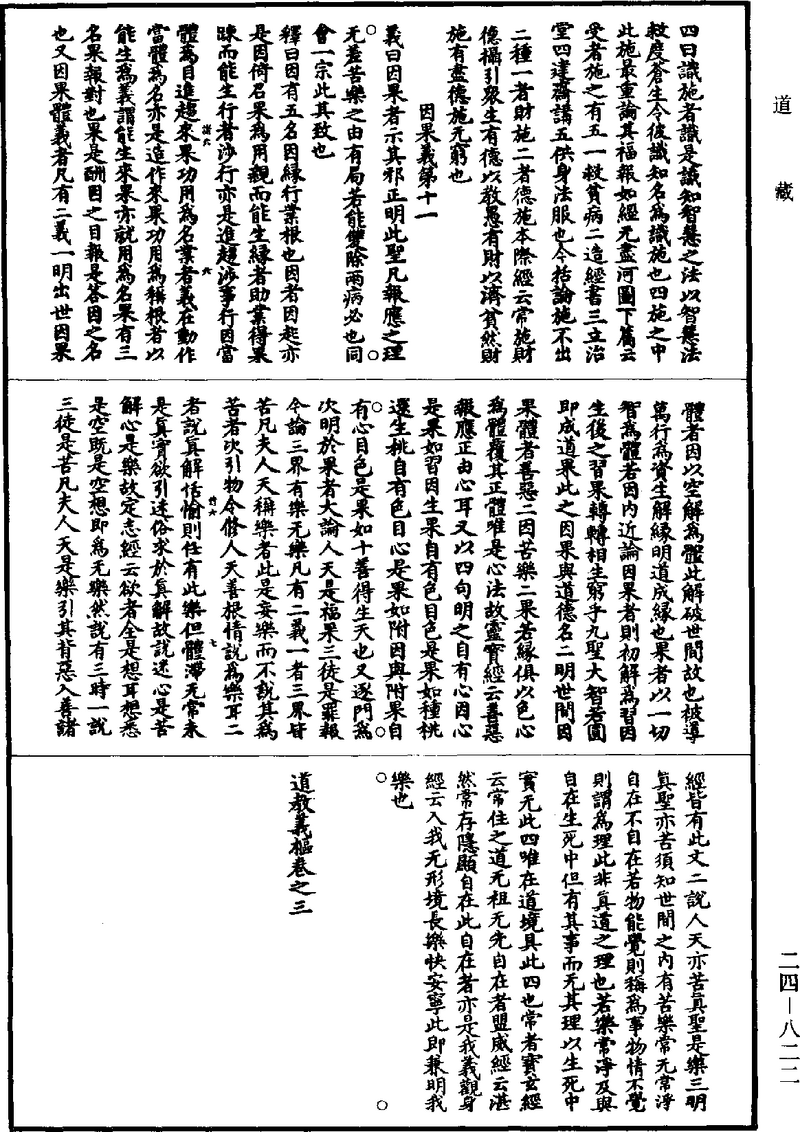 道藏
四曰識施者識是識知智慧之法以智慧法
救度蒼生令彼識知名爲識施也四施之中
此施最重論其福報如經无盡河圖下篇云
受者施之有五一救貧病二造經書三立治
堂四建齋講五供身法服也今括論施不出
二種一者財施二者德施本際經云常施財
德攝引衆生有德以教愚有財以濟貧然財
施有盡德施无窮也
因果義第十一
義曰因果者示其邪正明此聖凡報應之理
无差苦樂之由有局若能雙除兩病必也同
會一宗此其致也
釋曰因有五名因緣行業根也因者因起亦
是因倚召果爲用觀而能生緣者助業得果
踈而能生行者涉行亦是進趨涉事行因當
體爲目進趨來果功用爲名業者義在動作
當體爲名亦是造作來果功用爲稱根者以
能生爲義謂能生來果亦就用爲名果有三
名果報對也果是酬因之目報是答因之名
也又因果體義者凡有二義一明出世因果
體者因以空解爲體此解破世間故也被導
萬行爲資生解緣明道成緣也果者以一切
智爲體若因內近論因果者則初解爲習因
生後之習果轉轉相生窮乎九聖大智若圓
即成道果此之因果與道德名二明世間因
果體者善惡二因苦樂二果若緣俱以色心
爲體覆其正體唯是心法故靈寶經云善惡
報應正由心耳又以四句明之自有心因心
是果如習因生果自有色目色是果如種桃
還生桃自有色目心是果如附因與附果自
有心目色是果如十善得生天也又逐門爲
次明於果者大論人天是福果三徒是罪報
今論三界有樂无樂凡有二義一者三界皆
苦凡夫人天稱樂者此是妄樂而不說其爲
苦者次引物令修人天善根情說爲樂耳二
者說真解恬愉則任有此樂但體滯无常未
是真實欲引迷俗求於真解故說迷心是苦
解心是樂故定志經云欲者全是想耳想悉
是空既是空想即爲无樂然說有三時一說
三徒是苦凡夫人天是樂引其背惡入善諸
經皆有此文二說人天亦苦真聖是樂三明
真聖亦苦須知世間之內有苦樂常无常淨
自在不自在若物能覺則稱爲事物情不覺
則謂爲理此非真道之理也若樂常淨及與
自在生死中但有其事而无其理以生死中
實无此四唯在道境具此四也常者寶玄經
云常住之道无祖无先自在者盟威經云湛
然常存隱顯自在此自在者亦是我義觀身
經云入我无形境長樂快安寧此即兼明我
樂也
道教義樞卷之三
二四—八二二